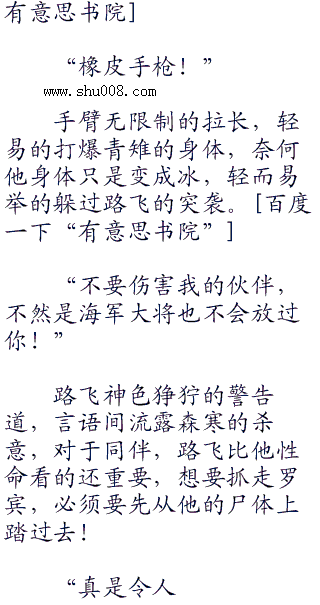 有意思书院]
“橡皮手枪！”
www.shu008.com
手臂无限制的拉长，轻
易的打爆青雉的身体，奈何
他身体只是变成冰，轻而易
举的躲过路飞的突袭。[百度
一下“有意思书院”]
“不要伤害我的伙伴，
不然是海军大将也不会放过
你！”
路飞神色狰狞的警告
道，言语间流露森寒的杀
意，对于同伴，路飞比他性
命看的还重要，想要抓走罗
宾，必须要先从他的尸体上
踏过去！
“真是令人